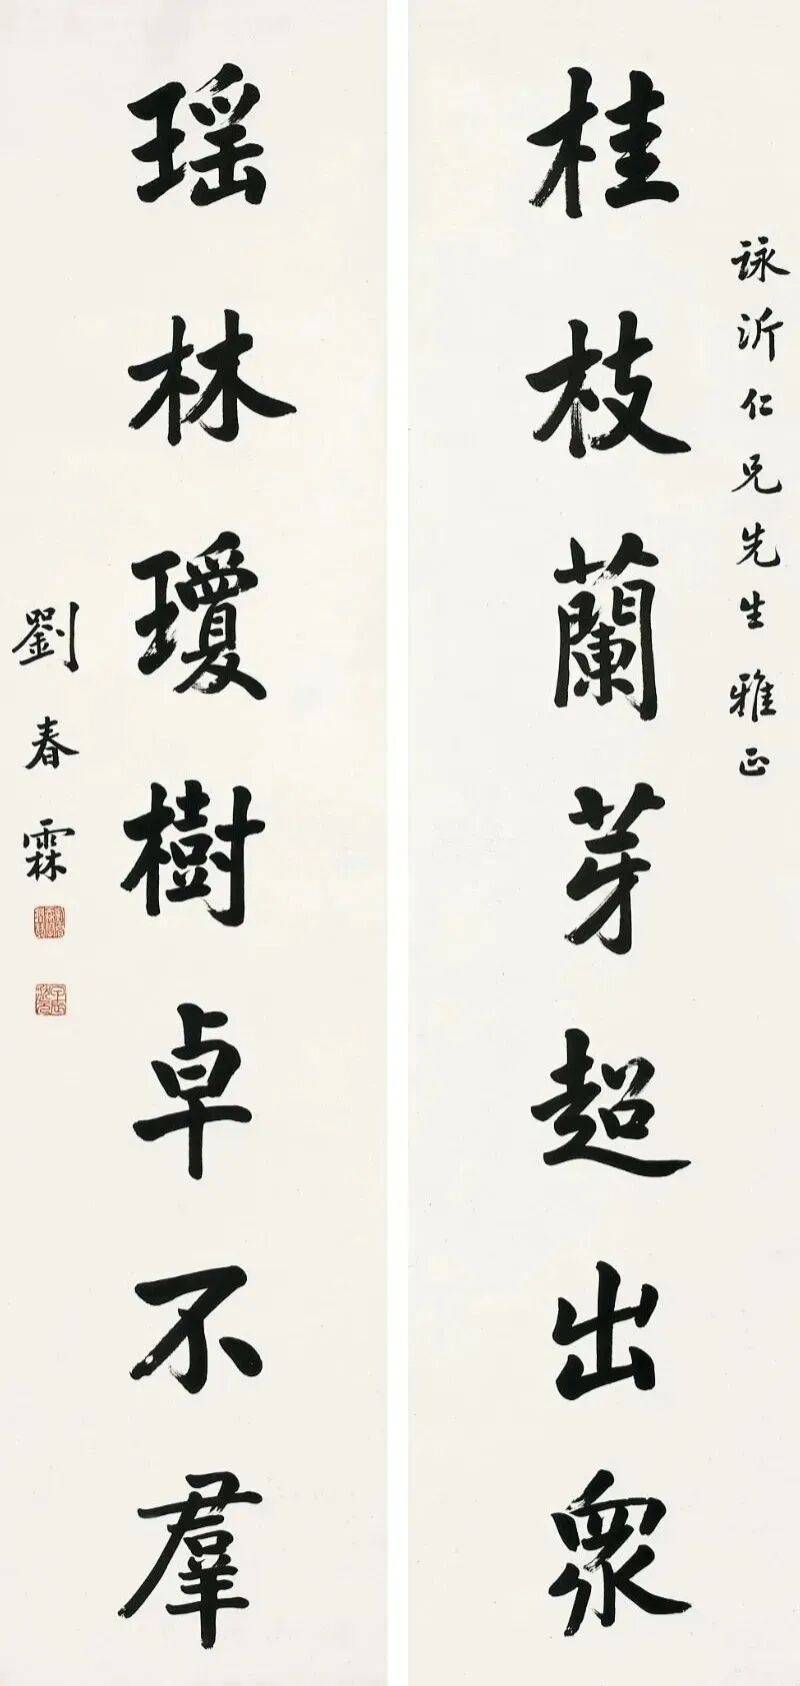 詠沂仁兄先生雅正
桂枝蘭芽超出眾
瑶林瓊樹卓不羣
劉春霖